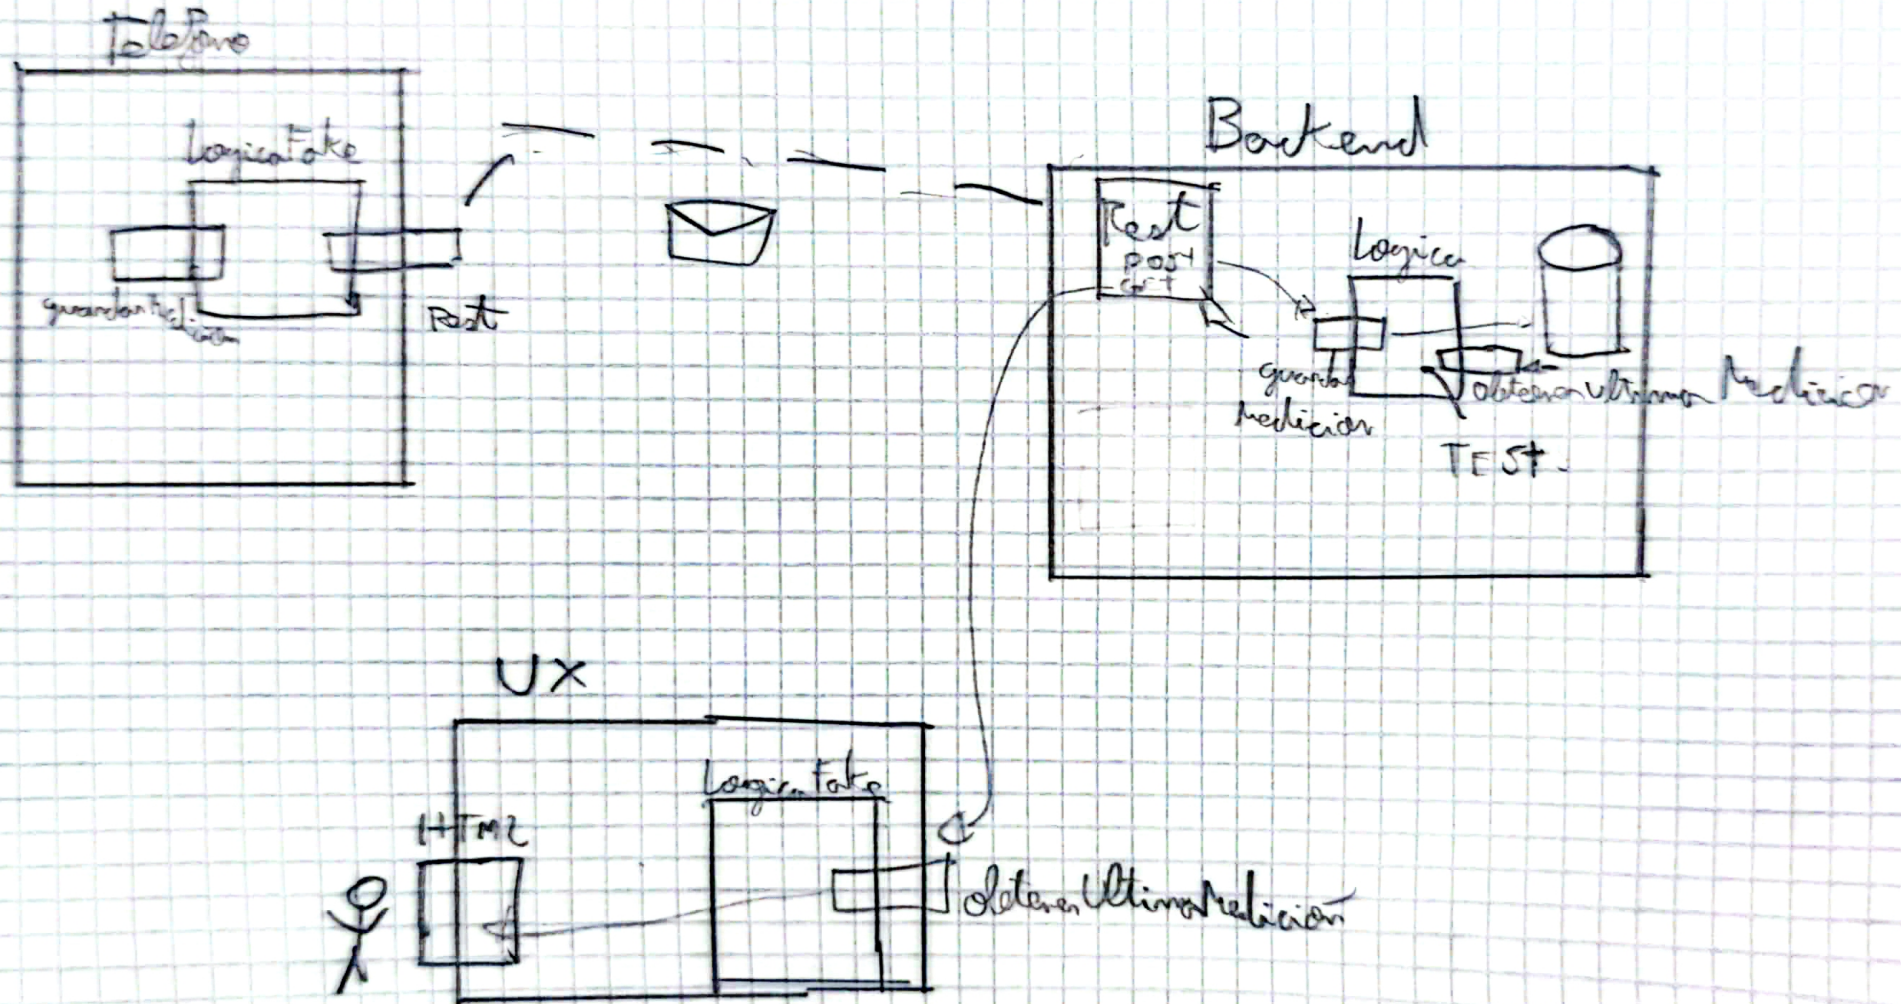 Telefono
LogicaFake
guardarMedicion
Rest
Backend
Rest
POST
GET
Logica
guardar
Medicion
obtenerUltimaMedicion
TEST.
UX
LogicaFake
HTML
obtenerUltimaMedición